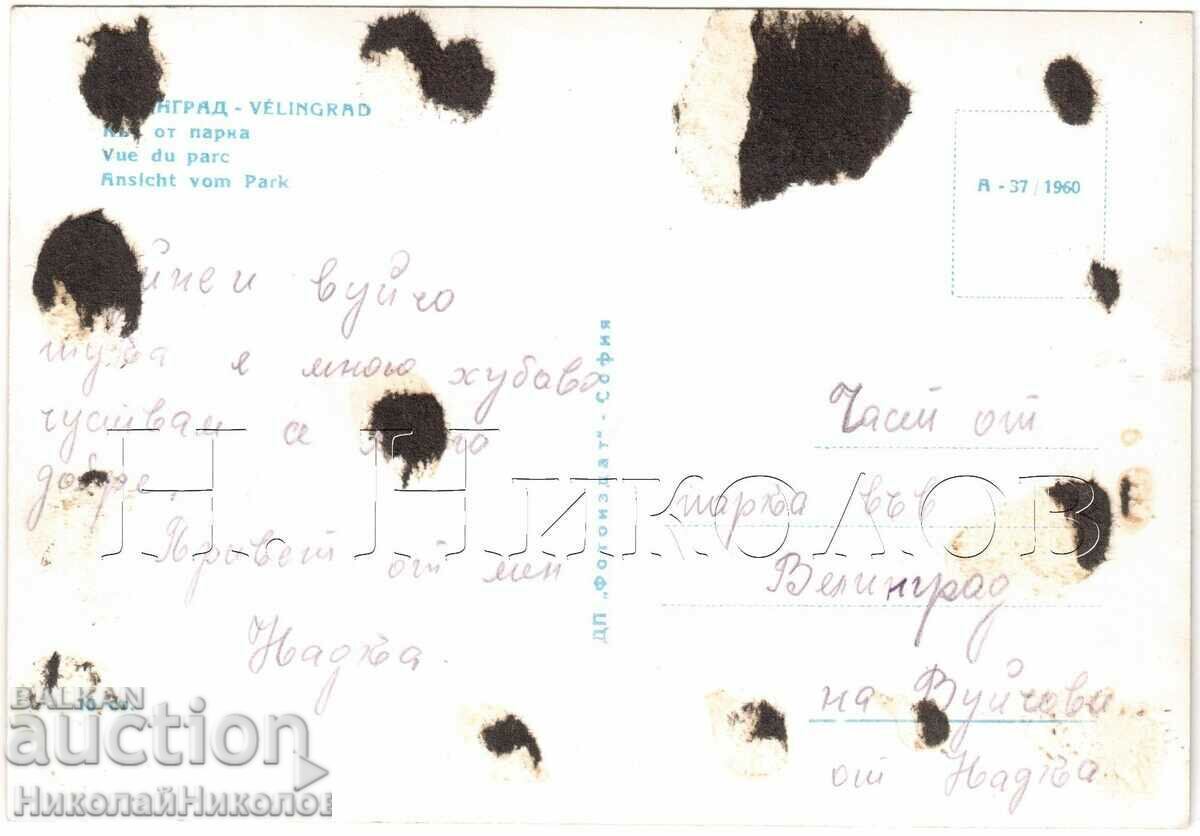 НГРАД - VÉLINGRAD
от парка
Vue du parc
Ansicht vom Park
A - 37 / 1960
вуйчо
тука я много хубаво
чуствам се
добре,
Привет от мен
Надка.
ДП „Фотоиздат" - София
Част от
парка във
Велинград
на Вуйчови
от Надка
Н. НИКОЛОВ
BALKAN
auction
НиколайНиколов